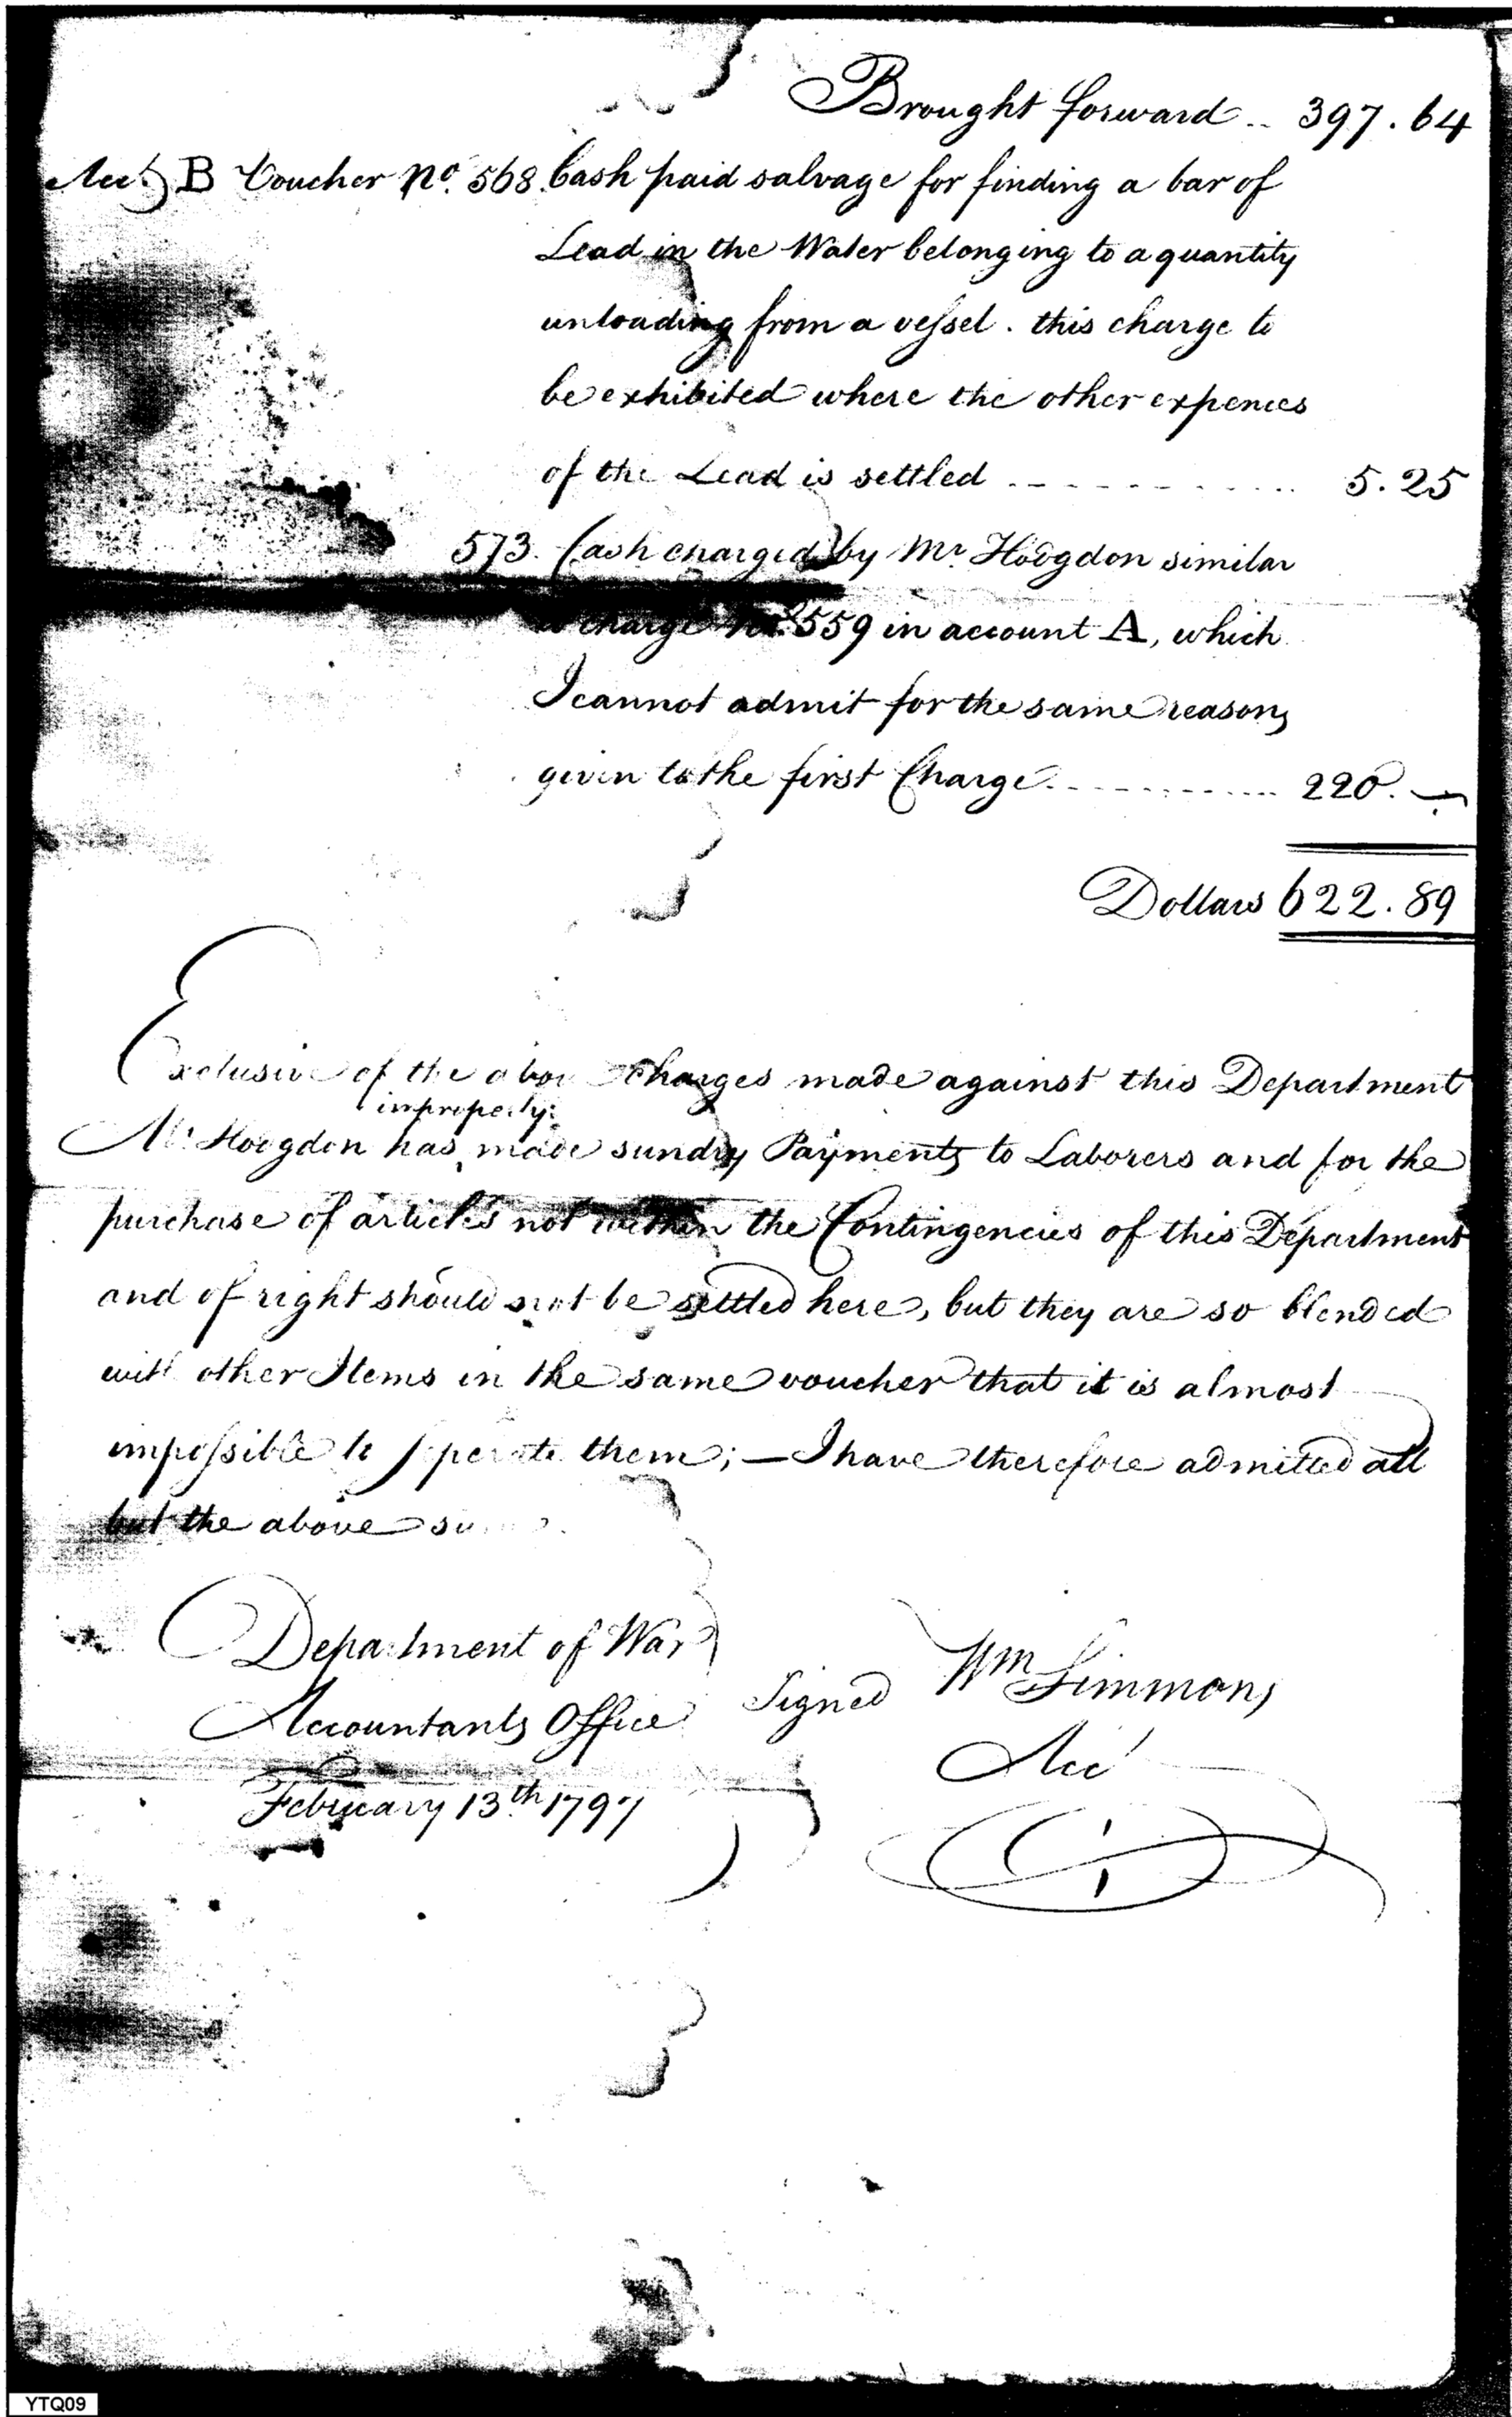 Brought forward .. 397.64
Acct. B Voucher No. 568. Cash paid salvage for finding a bar of
Lead in the Water belonging to a quantity
unloading from a vessel. this charge to
be exhibited where the other expences
of the Lead is settled ............ 5.25
573. Cash charged by Mr. Hodgdon similar
to charge No. 559 in account A, which
I cannot admit for the same reasons
given to the first Charge ............ 220. —
Dollars 622.89
Exclusive of the above Charges made against this Department
improperly
Mr. Hodgdon has, made sundry Payments to Laborers and for the
purchase of articles not within the Contingencies of this Department
and of right should not be settled here, but they are so blended
with other Items in the same voucher that it is almost
impossible to seperate them; — I have therefore admitted all
but the above
Department of War
Accountants Office
Signed Wm Simmons
Acct
February 13th 1797
YTQ09